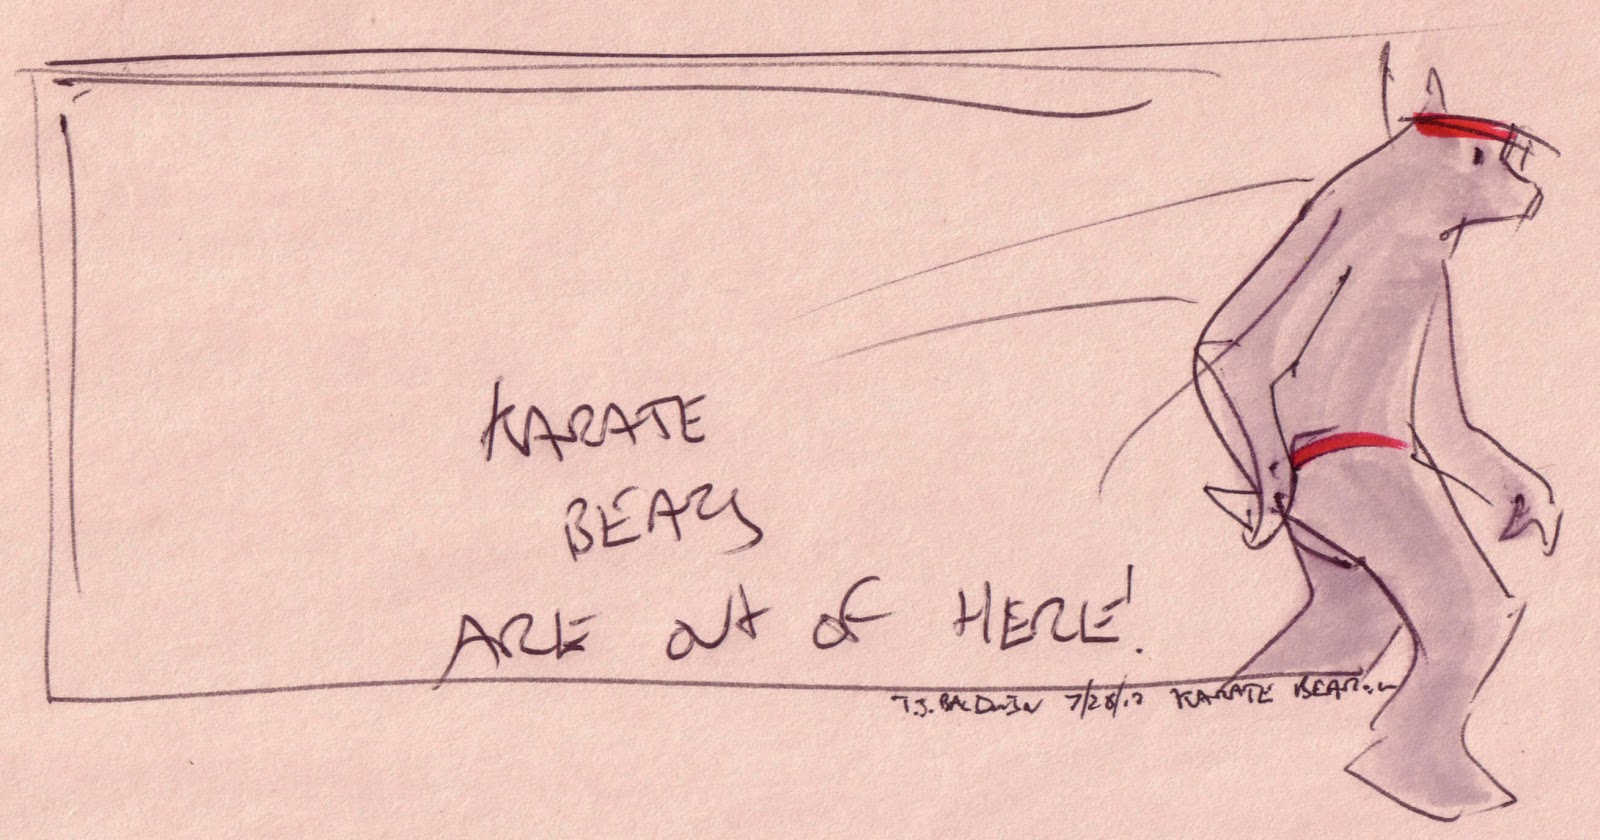 KARATE
BEARS
ARE OUT OF HERE!
T.J. BALDWIN 7/28/12 KARATE